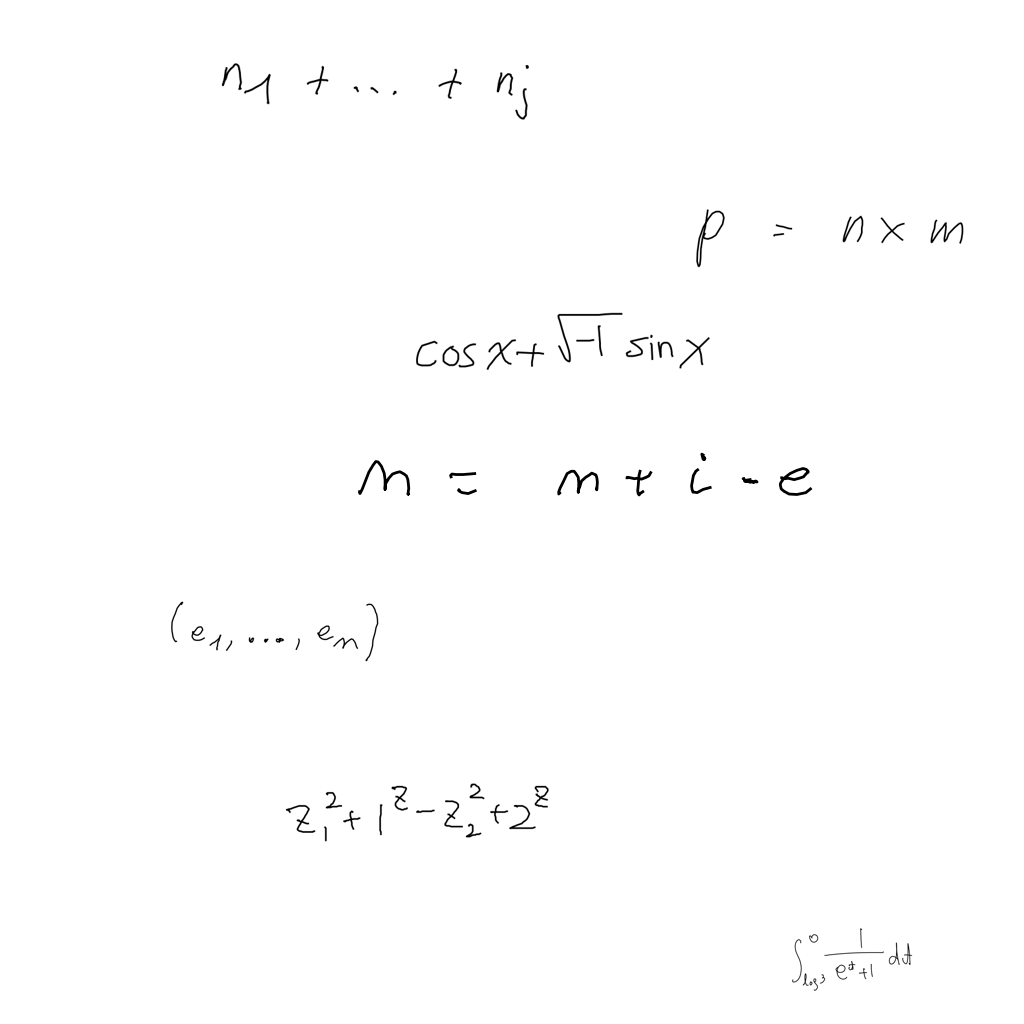 $n_1 + \ldots + n_j$
$p = n \times m$
$\cos x + \sqrt{-1} \sin x$
$n = n + i - e$
$(e_1, \ldots, e_n)$
$z_1^2 + 1^z - z_2^2 + 2^z$
$\int_{\log 3}^{0} \frac{1}{e^t + 1} dt$